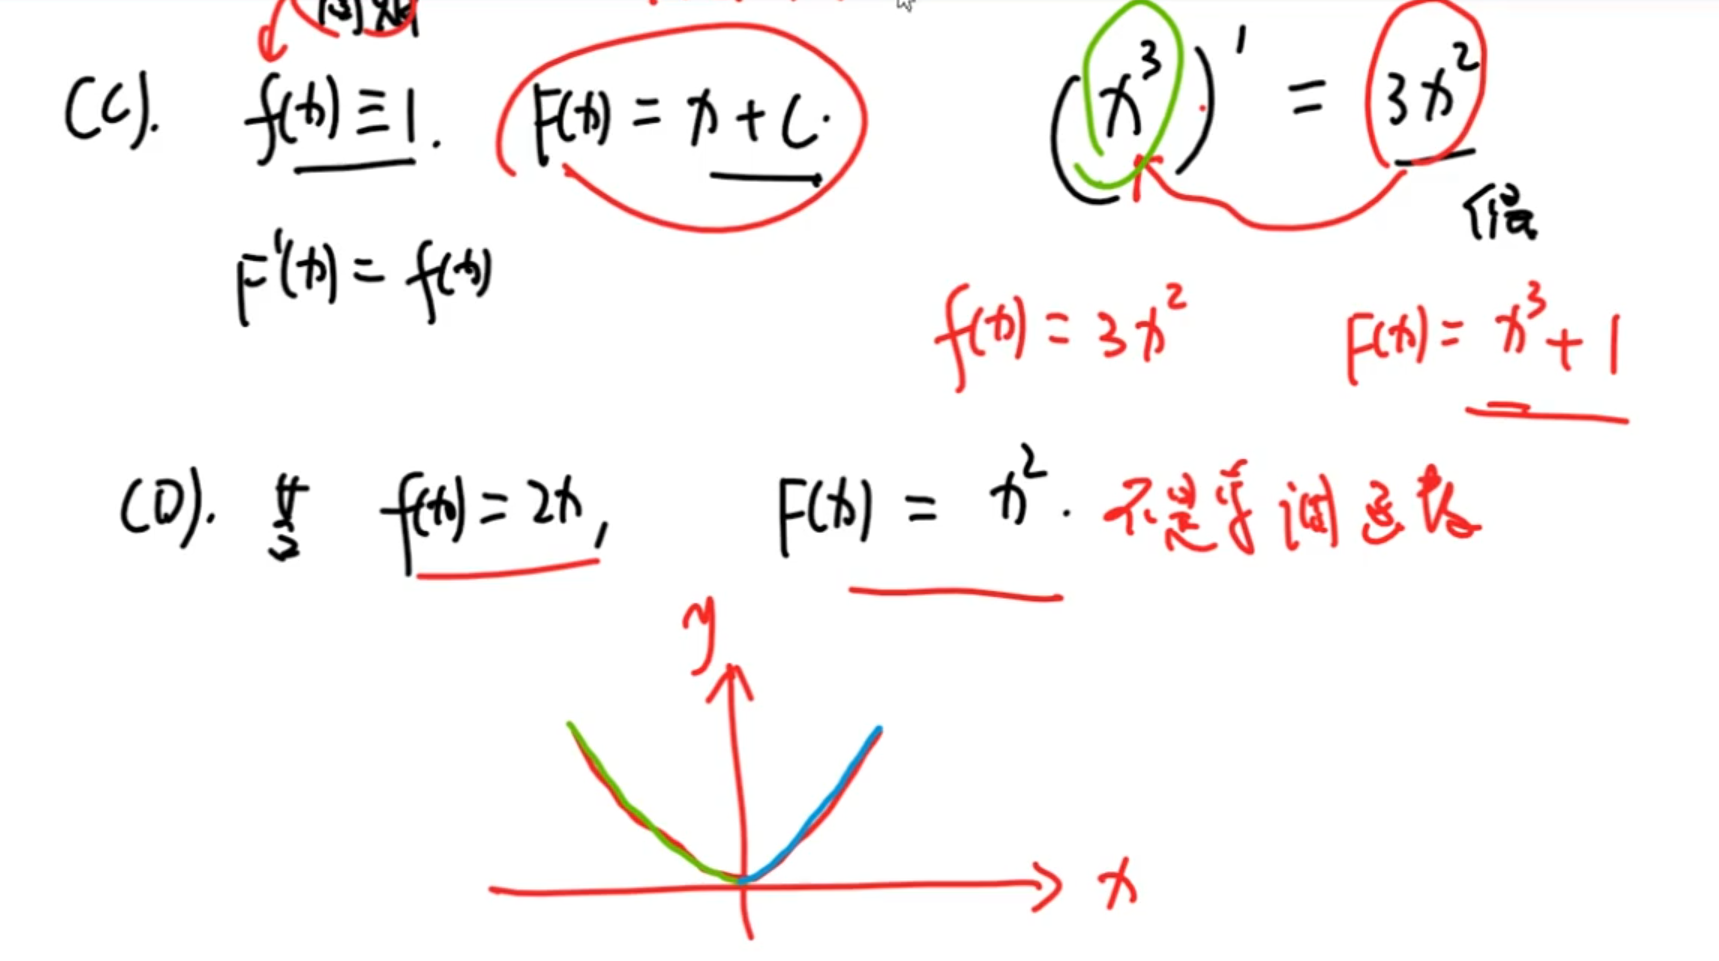 (C). f(x) ≡ 1. F(x) = x + C. (x³)' = 3x²
偶
F'(x) = f(x)
f(x) = 3x² F(x) = x³ + 1
(D). f(x) = 2x, F(x) = x². 不是单调函数
y
x